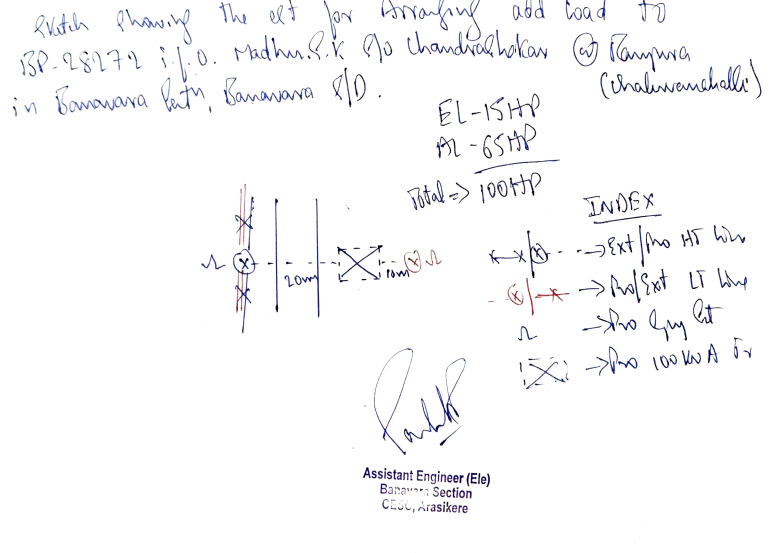 Sketch showing the est for Arranging add load to
BP-28272 i.f.o. Madhu.S.K S/o Chandrashakar @ Rampura
(Chaluvanahalli)
in Banavara Sectn, Banavara S/D.
EL-15HP
AL-65HP
Total => 100HP
INDEX
Ext/Pro HT line
Pro/Ext LT line
Pro
Pro 100KVA Tr
20m
10m
Assistant Engineer (Ele)
Banavara Section
CESC, Arasikere